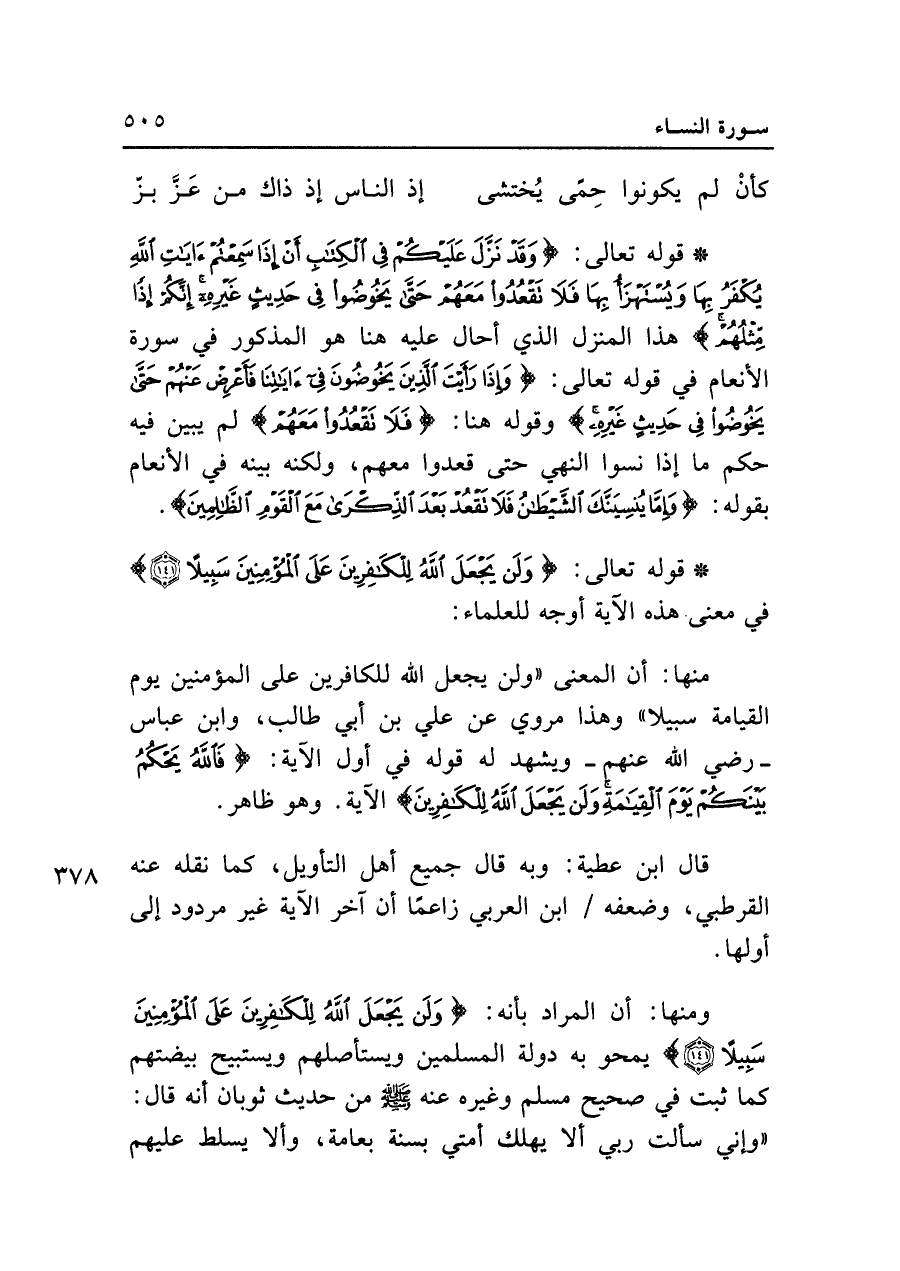 سورة النساء ٥٠٥
كأنْ لم يكونوا حِمًى يُختشى إذ الناس إذ ذاك من عَزَّ بزّ
* قوله تعالى: ﴿وَقَدْ نَزَّلَ عَلَيْكُمْ فِى ٱلْكِتَٰبِ أَنْ إِذَا سَمِعْتُمْ ءَايَٰتِ ٱللَّهِ
يُكْفَرُ بِهَا وَيُسْتَهْزَأُ بِهَا فَلَا تَقْعُدُوا۟ مَعَهُمْ حَتَّىٰ يَخُوضُوا۟ فِى حَدِيثٍ غَيْرِهِۦٓ ۚ إِنَّكُمْ إِذًا
مِّثْلُهُمْ ۗ﴾ هذا المنزل الذي أحال عليه هنا هو المذكور في سورة
الأنعام في قوله تعالى: ﴿وَإِذَا رَأَيْتَ ٱلَّذِينَ يَخُوضُونَ فِىٓ ءَايَٰتِنَا فَأَعْرِضْ عَنْهُمْ حَتَّىٰ
يَخُوضُوا۟ فِى حَدِيثٍ غَيْرِهِۦ ۚ﴾ وقوله هنا: ﴿فَلَا تَقْعُدُوا۟ مَعَهُمْ﴾ لم يبين فيه
حكم ما إذا نسوا النهي حتى قعدوا معهم، ولكنه بينه في الأنعام
بقوله: ﴿وَإِمَّا يُنسِيَنَّكَ ٱلشَّيْطَٰنُ فَلَا تَقْعُدْ بَعْدَ ٱلذِّكْرَىٰ مَعَ ٱلْقَوْمِ ٱلظَّٰلِمِينَ﴾.
* قوله تعالى: ﴿وَلَن يَجْعَلَ ٱللَّهُ لِلْكَٰفِرِينَ عَلَى ٱلْمُؤْمِنِينَ سَبِيلًا ۝١٤١﴾
في معنى هذه الآية أوجه للعلماء:
منها: أن المعنى «ولن يجعل الله للكافرين على المؤمنين يوم
القيامة سبيلا» وهذا مروي عن علي بن أبي طالب، وابن عباس
ـ رضي الله عنهم ـ ويشهد له قوله في أول الآية: ﴿فَٱللَّهُ يَحْكُمُ
بَيْنَكُمْ يَوْمَ ٱلْقِيَٰمَةِ ۗ وَلَن يَجْعَلَ ٱللَّهُ لِلْكَٰفِرِينَ﴾ الآية. وهو ظاهر.
قال ابن عطية: وبه قال جميع أهل التأويل، كما نقله عنه ٣٧٨
القرطبي، وضعفه / ابن العربي زاعمًا أن آخر الآية غير مردود إلى
أولها.
ومنها: أن المراد بأنه: ﴿وَلَن يَجْعَلَ ٱللَّهُ لِلْكَٰفِرِينَ عَلَى ٱلْمُؤْمِنِينَ
سَبِيلًا ۝١٤١﴾ يمحو به دولة المسلمين ويستأصلهم ويستبيح بيضتهم
كما ثبت في صحيح مسلم وغيره عنه ﷺ من حديث ثوبان أنه قال:
«وإني سألت ربي ألا يهلك أمتي بسنة بعامة، وألا يسلط عليهم